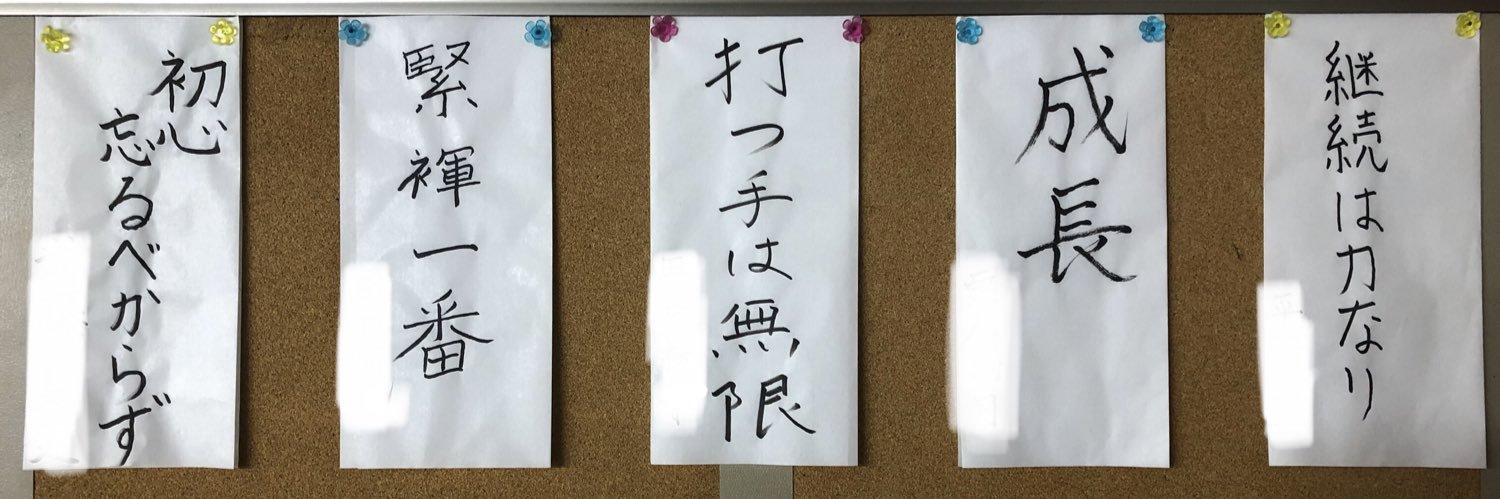 継続は力なり
成長
打つ手は無限
緊褌一番
初心
忘るべからず